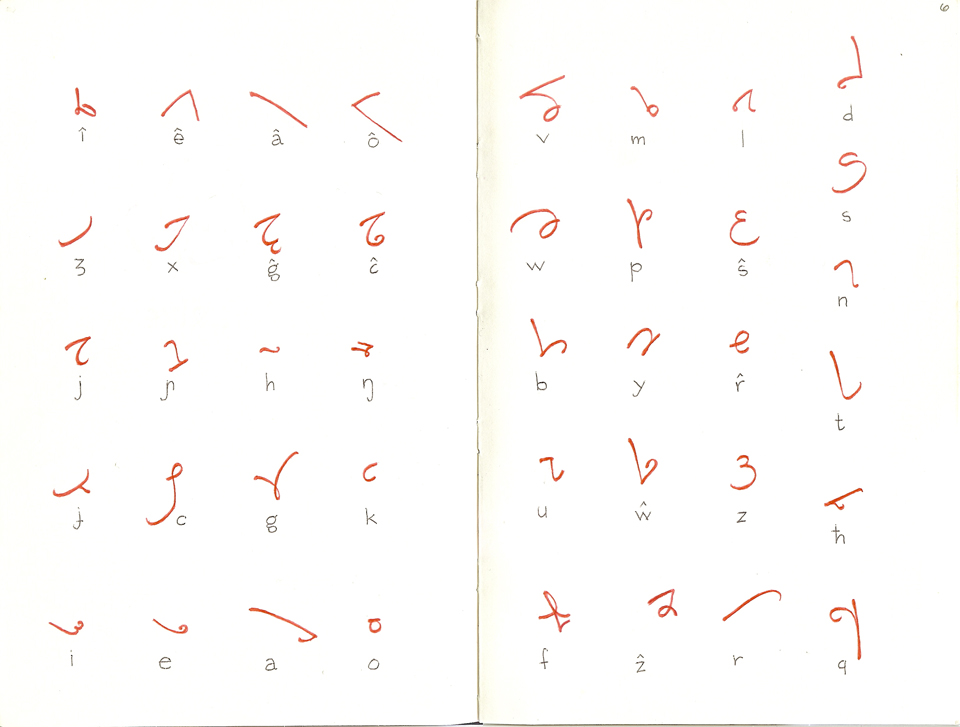 6
î ê â ô
ʒ x ĝ ĉ
j ɲ h ŋ
ɟ c g k
i e a o
v m l d
w p ŝ s
b y r̂ n
u ŵ z t
ħ
f ẑ r q